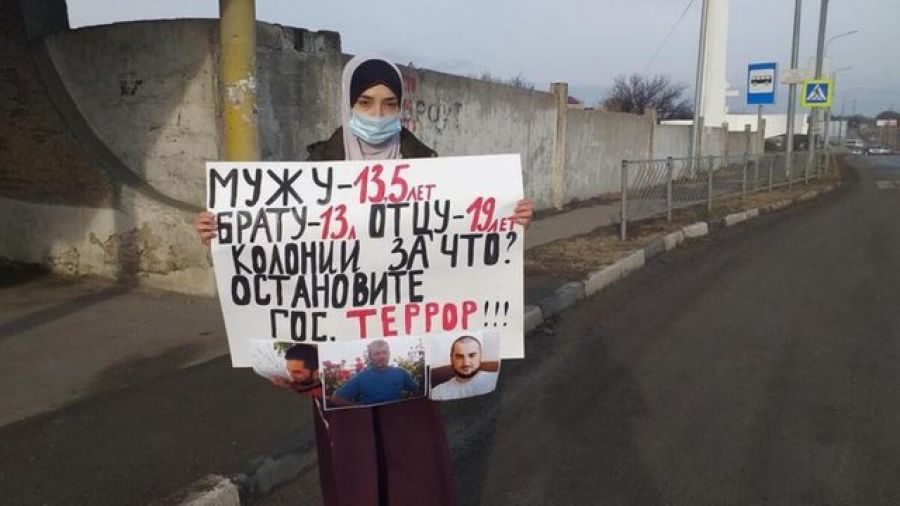 МУЖУ-13,5 ЛЕТ
БРАТУ-13 Л ОТЦУ-19 ЛЕТ
КОЛОНИИ ЗА ЧТО?
ОСТАНОВИТЕ
ГОС. ТЕРРОР!!!